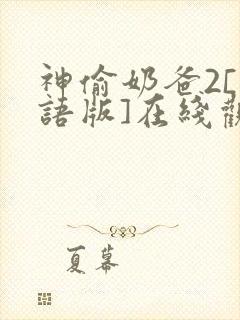 神偷奶爸2[
語版]在綫觀
夏幕